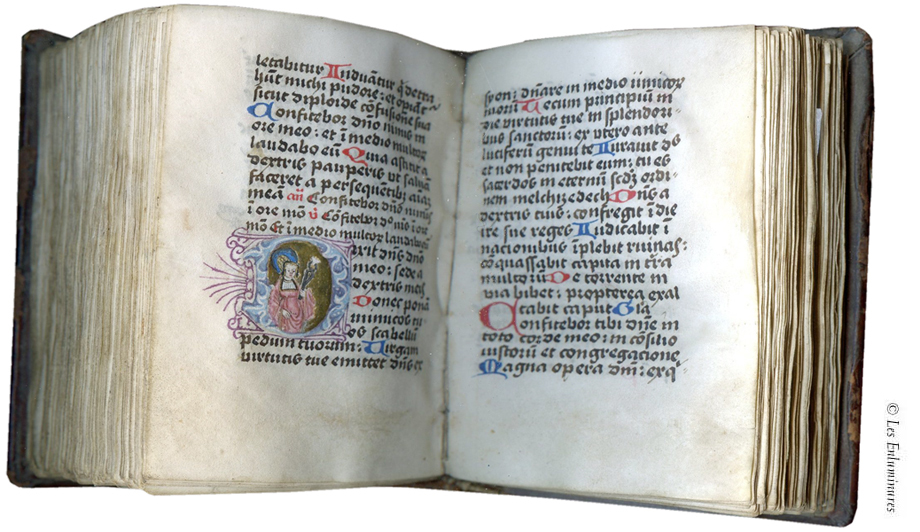 letabitur Induātur q̄ detra
hūt michi pudore: et opiāt᷑
sicut diploide cōfusione sua
Confitebor dn̄o nimis in
ore meo: et ī medio multoꝝ
laudabo eū Quia astitit a
dextris pauperis ut saluā
faceret a persequētibꝰ aīaꝫ
meā añ Confitebor dn̄o nimis
ī ore meo v̄ Cōfitebor dº nīs ī ore
mō Et ī medio multoꝝ laudabo eū
Dixit dn̄s dn̄o
meo: sede a
dextris meis
Donec ponā
inimicos tu-
os scabellū
pedum tuorum: Uirgam
virtutis tue emittet dn̄s ex
syon: dn̄are in medio inimicoꝝ
tuoꝝ Tecum principiū in
die virtutis tue in splendori-
bus sanctorū: ex vtero ante
luciferū genui te Iurauit dn̄s
et non penitebit eum: tu es
sacerdos in eternū scd̄ꝫ ordi-
nem melchizedech Dn̄s a
dextris tuis: confregit ī die
ire sue reges Iudicabit ī
nacionibus īplebit ruinas:
cōquassabit capita in tr̄a
multoꝝ De torrente in
via bibet: propterea exal
tabit caput Gl̄a
Confitebor tibi dn̄e in
toto corde meo: in cōsilio
iustorū et congregacione
Magna opera dn̄i: exq̄
© Les Enluminures